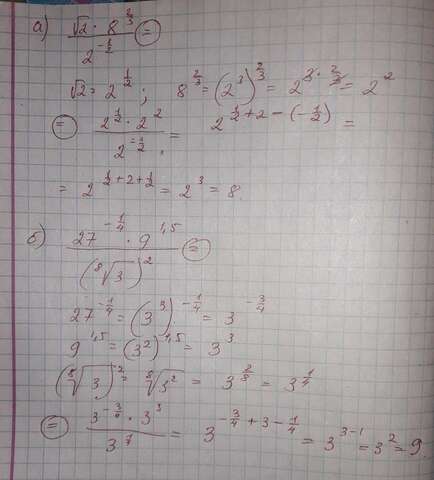 а) (√2 · 8^(2/3)) / 2^(-1/2) =
√2 = 2^(1/2) ; 8^(2/3) = (2^3)^(2/3) = 2^(3 · 2/3) = 2^2
= (2^(1/2) · 2^2) / 2^(-1/2) = 2^(1/2 + 2 - (-1/2)) =
= 2^(1/2 + 2 + 1/2) = 2^3 = 8.
б) (27^(-1/4) · 9^(1,5)) / (⁸√3)^2 =
27^(-1/4) = (3^3)^(-1/4) = 3^(-3/4)
9^(1,5) = (3^2)^(1,5) = 3^3
(⁸√3)^2 = ⁸√3^2 = 3^(2/8) = 3^(1/4)
= (3^(-3/4) · 3^3) / 3 = 3^(-3/4 + 3 - 1/4) = 3^(3-1) = 3^2 = 9.